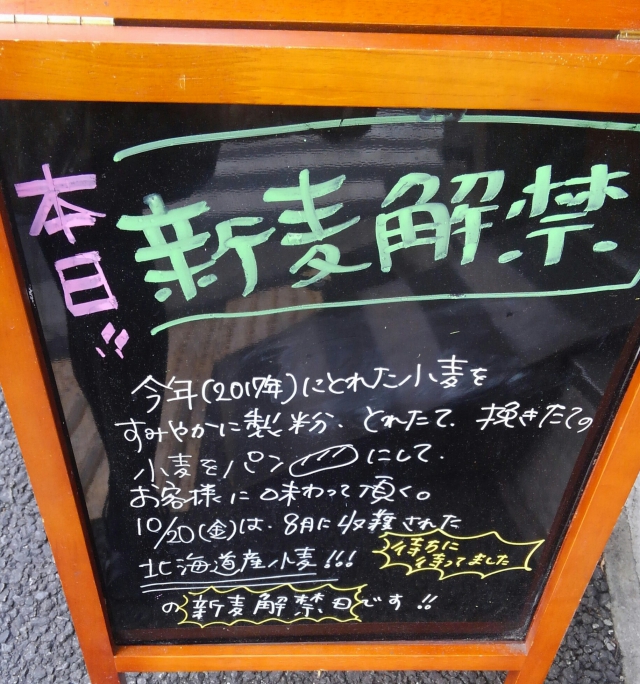 本日!!
新麦解禁
今年(2017年)にとれた小麦を
すみやかに製粉、とれたて、挽きたての
小麦をパンにして、
お客様に味わって頂く。
10/20(金)は、8月に収穫された
北海道産小麦!!!
待ちに
待ってました
の新麦解禁日です!!